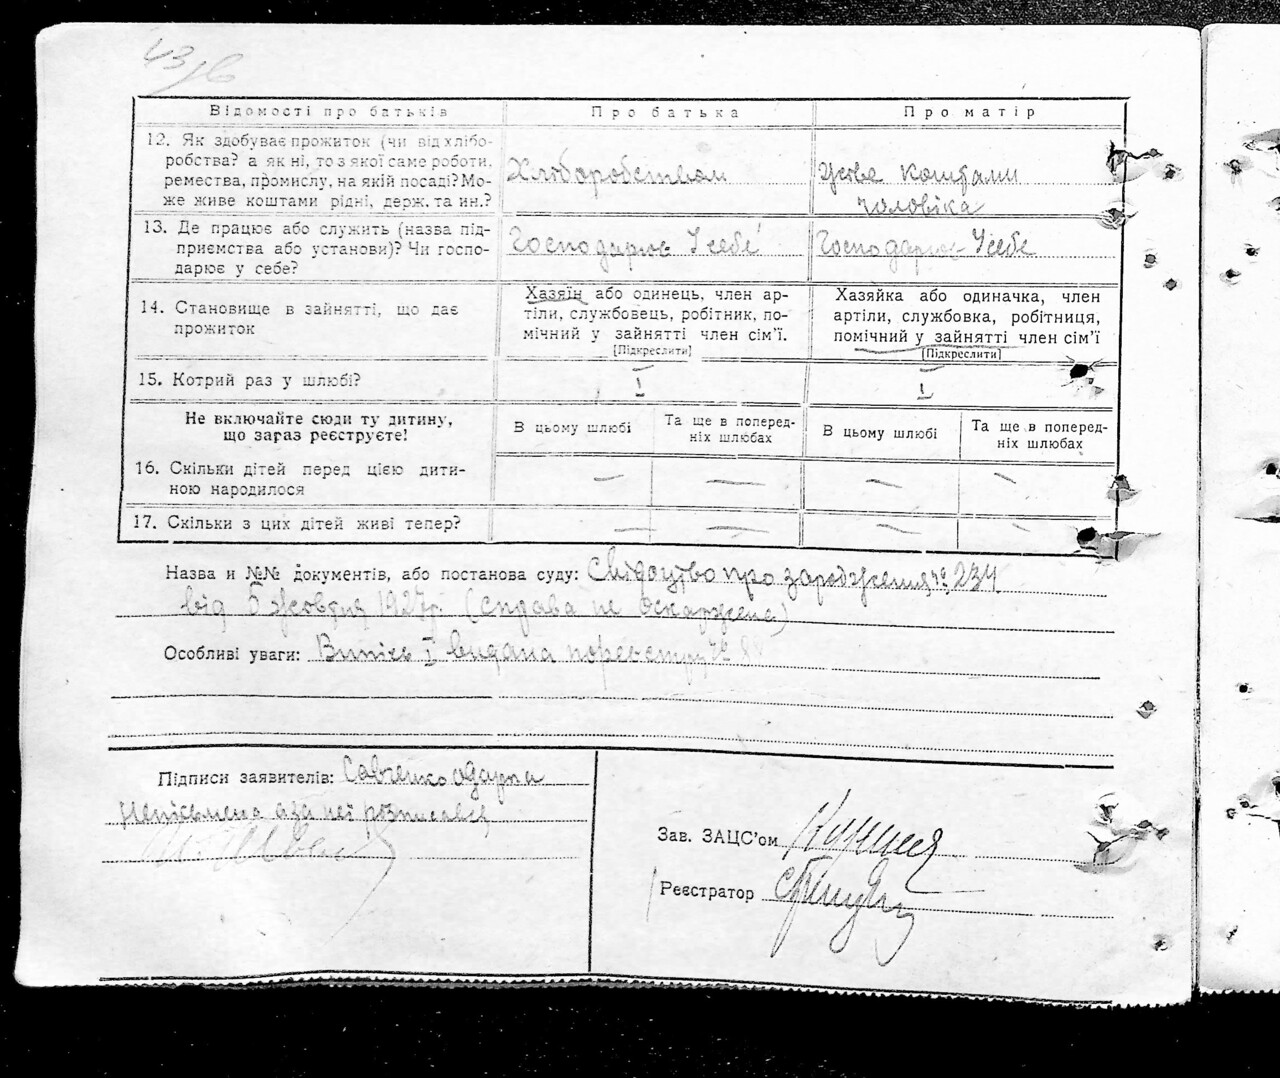 43/в
Відомості про батьків Про батька Про матір
12. Як здобуває прожиток (чи від хлібо-
робства? а як ні, то з якої саме роботи,
ремества, промислу, на якій посаді? Мо-
же живе коштами рідні, держ. та ин.?
Хлiборобством
живе коштами
чоловіка
13. Де працює або служить (назва під-
приємства або установи)? Чи госпо-
дарює у себе?
Господарює У себе
Господарює У себе
14. Становище в зайнятті, що дає
прожиток
Хазяїн або одинець, член ар-
тіли, службовець, робітник, по-
мічний у зайнятті член сім'ї.
[Підкреслити]
Хазяйка або одиначка, член
артіли, службовка, робітниця,
помічний у зайнятті член сім'ї
[Підкреслити]
15. Котрий раз у шлюбі? I I
Не включайте сюди ту дитину,
що зараз реєструєте!
В цьому шлюбі
Та ще в поперед-
ніх шлюбах
В цьому шлюбі
Та ще в поперед-
ніх шлюбах
16. Скільки дітей перед цією дити-
ною народилося
— — — —
17. Скільки з цих дітей живі тепер? — — — —
Назва и №№ документів, або постанова суду: Свідоцтво про зародження № 234
від 5 жовтня 1927р. (справа не оскаржена)
Особливі уваги: Випись I видана по реєстру №
Підписи заявителів: Савченко Одарка
Неписьмена а за неї розписався
Зав. ЗАЦС'ом
Реєстратор